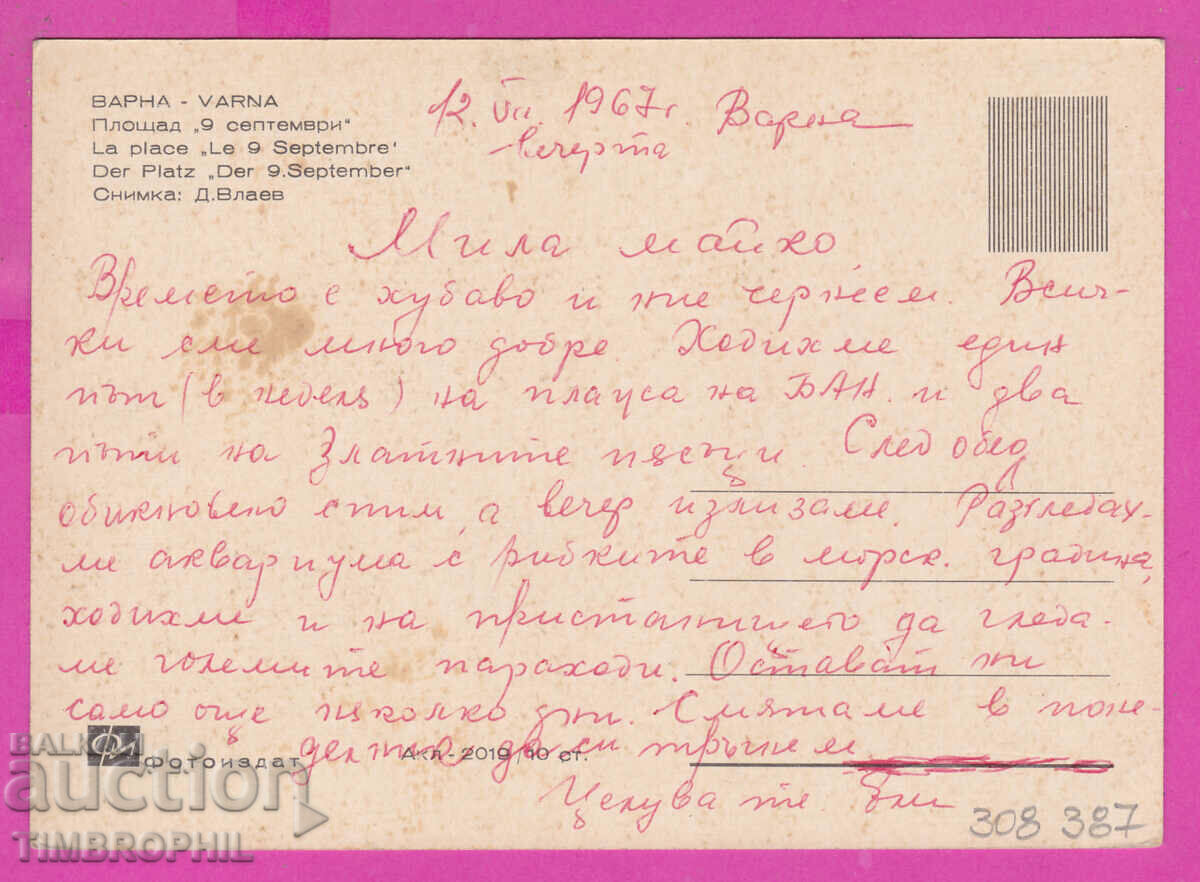 ВАРНА - VARNA
Площад „9 септември"
La place „Le 9 Septembre'
Der Platz „Der 9.September"
Снимка: Д.Влаев
12. VII. 1967 г. Варна
вечерта
Мила майко
Времето е хубаво и ние чернеем. Всич-
ки сме много добре. Ходихме един
път (в неделя) на плажа на БАН. и два
пъти на Златните пясъци. След обед
обикновено спим, а вечер излизаме. Разгледах-
ме аквариума с рибките в морск. градина,
ходихме и на пристанището да гледа-
ме големите параходи. Остават ни
само още няколко дни. Смятаме в поне-
делник да си тръгнем
Целува те
Фотоиздат
Акл-2019/10 ст.
308 387
БАЛКАН
auction
TIMBROPHIL